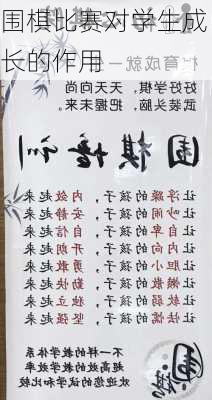 围棋比赛对学生成
长的作用
武装头脑，把握未来。
围棋培训
让浮躁的孩子，内敛起来
让吵闹的孩子，安静起来
让自卑的孩子，自信起来
让内向的孩子，开朗起来
让胆小的孩子，勇敢起来
让懒散的孩子，勤快起来
让软弱的孩子，独立起来
让怯懦的孩子，坚强起来
不一样的教学体系
高效的教学效率
欢迎您的试学和比较
围棋